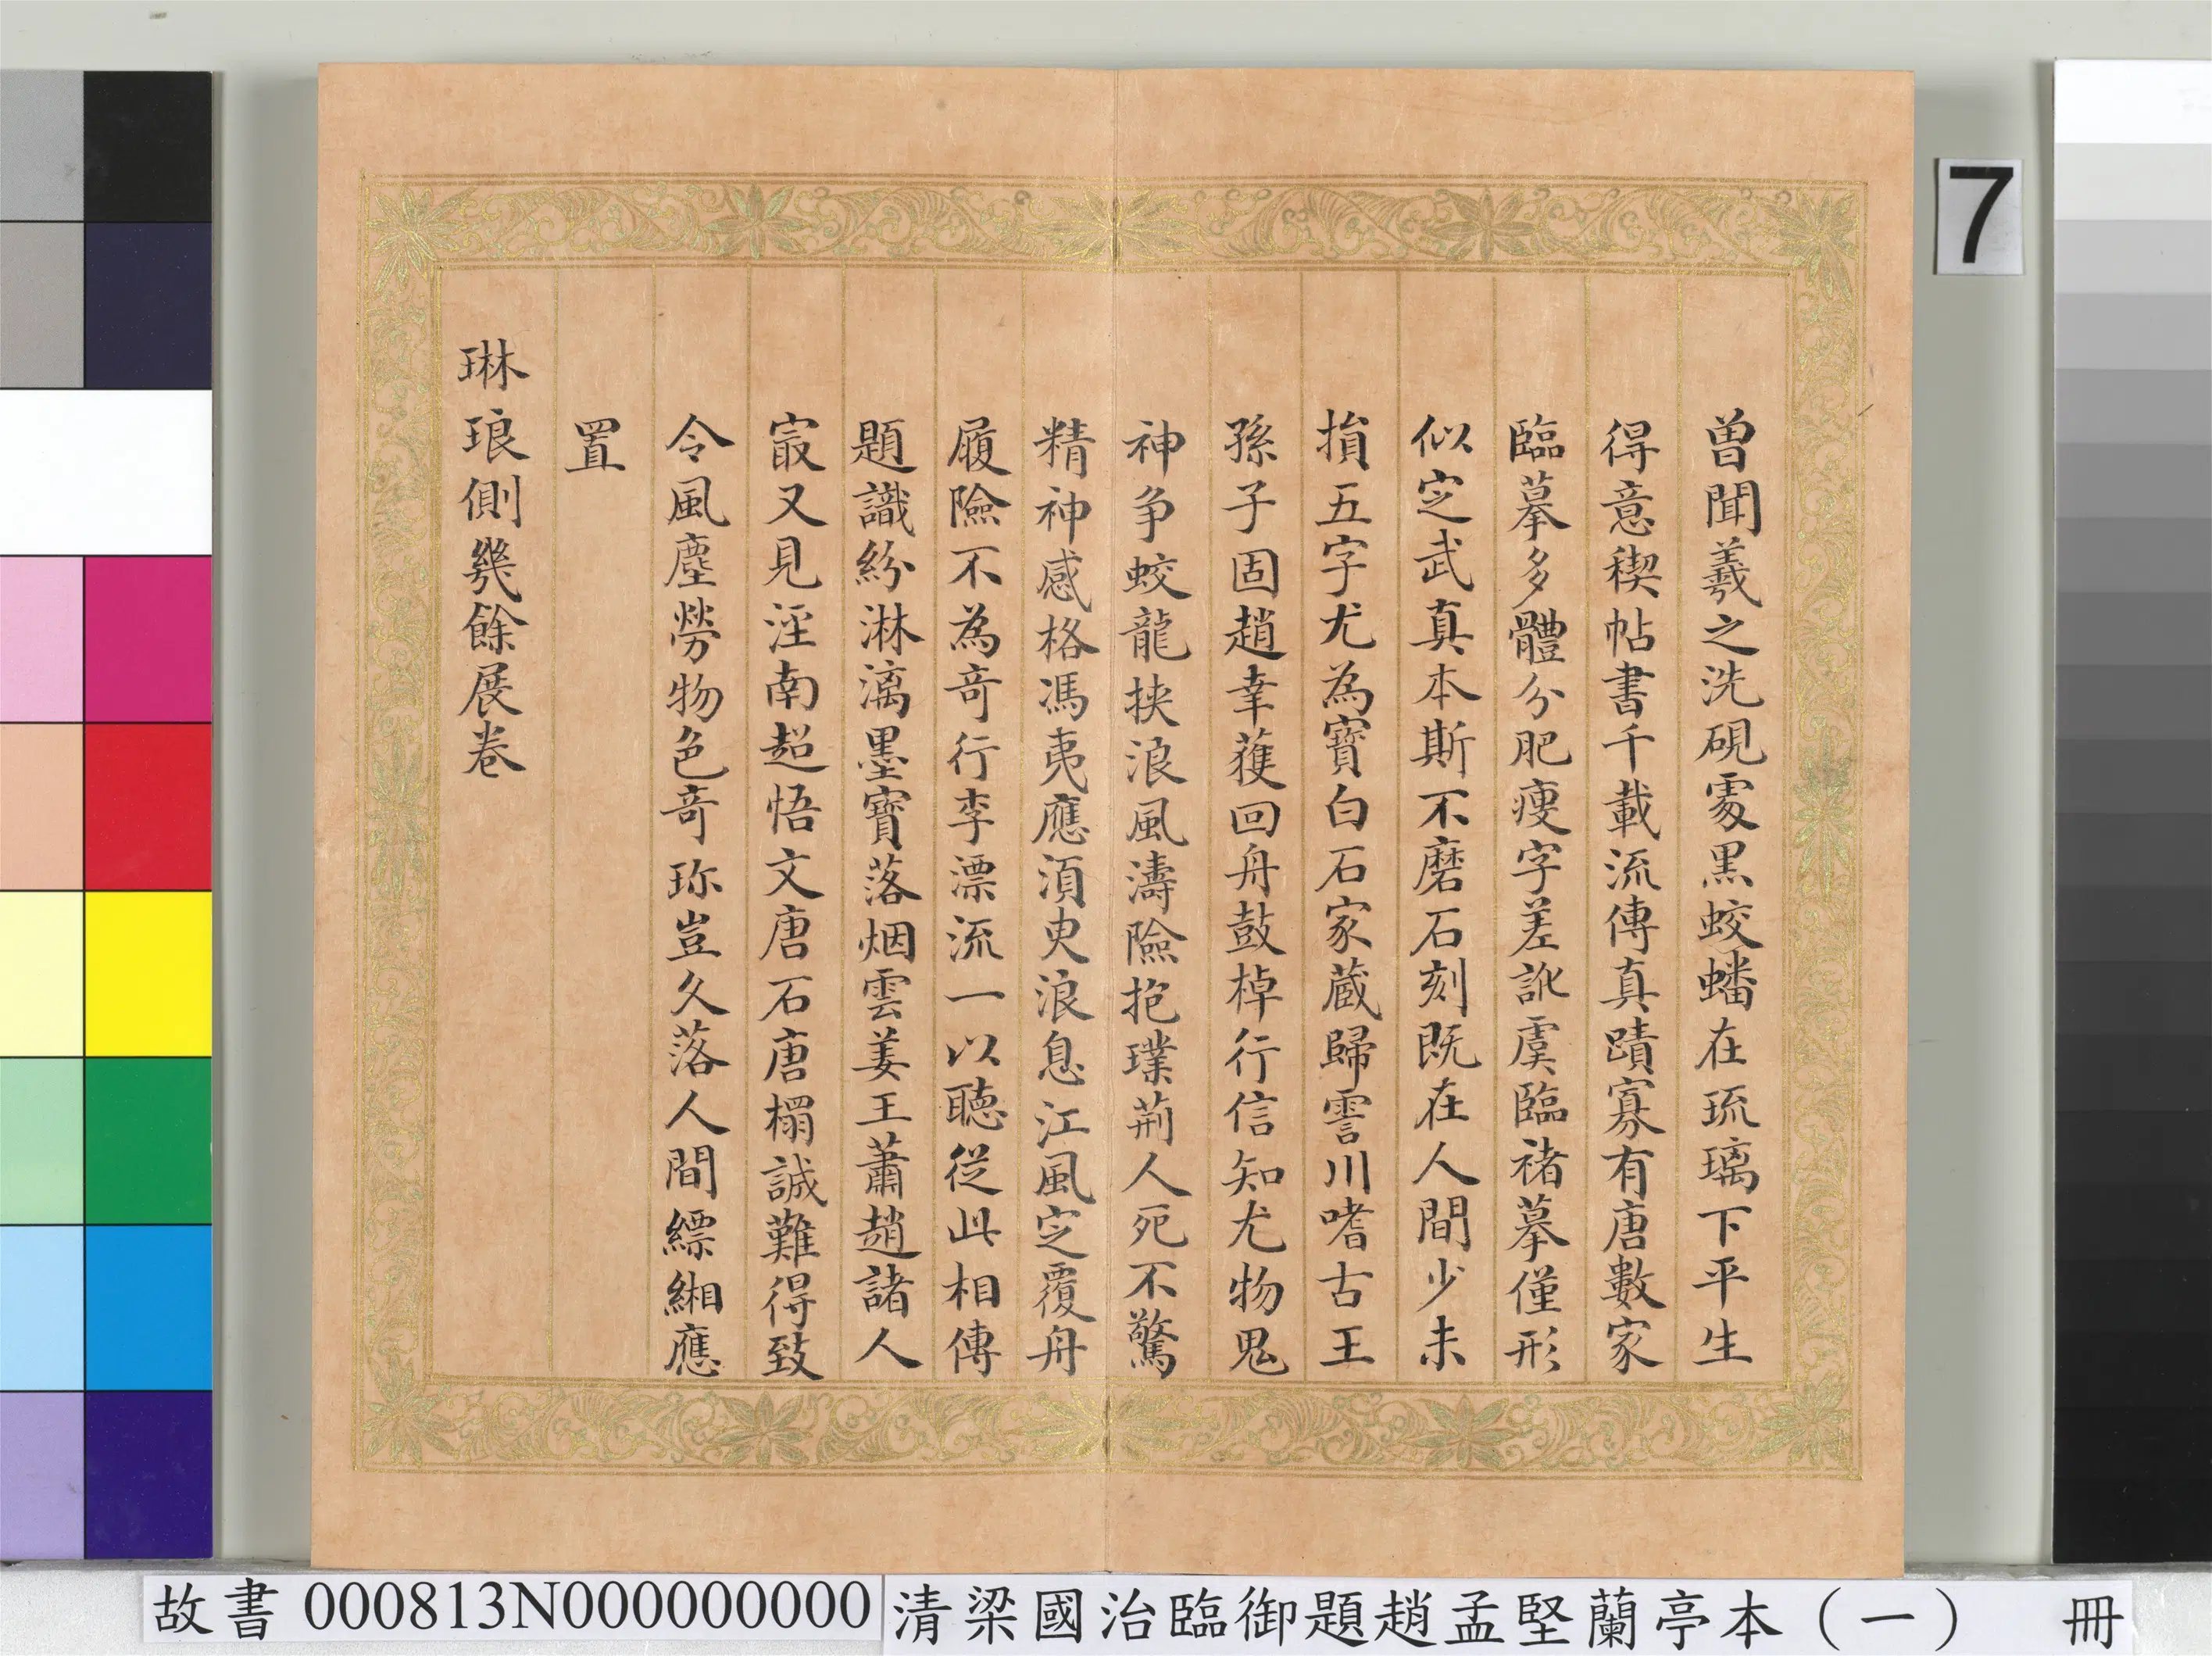 曽聞羲之洗硯處黒蛟蟠在琉璃下平生
得意稧帖書千載流傳真蹟寡有唐數家
臨摹多體分肥瘦字差訛虞臨褚摹僅形
似定武真本斯不磨石刻既在人間少未
損五字尤為寶白石家藏歸霅川嗜古王
孫子固趙幸獲回舟鼓棹行信知尤物鬼
神争蛟龍挟浪風濤險抱璞荊人死不驚
精神感格馮夷應湏臾浪息江風定覆舟
履險不為竒行李漂流一以聴従此相傳
題識紛淋漓墨寶落烟雲姜王蕭趙諸人
㝡又見淫南超悟文唐石唐榻誠難得致
令風塵勞物色竒珎豈久落人間縹緗應
置
琳琅側幾餘展卷
7
故書 000813N000000000
清梁國治臨御題趙孟堅蘭亭本（一） 冊